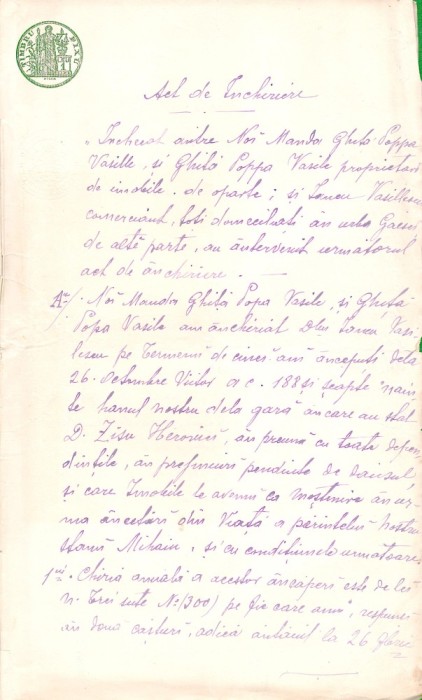 TIMBRU FIX
Act de Inchiriere
"Incheeat antre Noi Manda Ghita Poppa
Vasille, si Ghită Poppa Vasile proprietari
de imobile de oparte; și Iancu Vasillescu
comerciant, toti domciliați ân urba Gaesci
de altă parte, au ântervenit urmatorul
act de ânchiriere. —
A/ Noi Manda Ghiță Popa Vasile, și Ghita
Popa Vasile am ânchiriat Dlui Iancu Vasi
lescu pe Termenu de cinci ani âncepuți dela
26. Octombre Viitor a.c. 188 și șeapte nain
te hanul nostru dela gară ân care au stat
D. Zisu ân preună cu toate depen
dințile, ân prejmuiri pendinte de dansul
și care Imobile le avemu ca Moștenire ân ur
ma âncetări din Viață a parintelui nostru
Mihaiu, și cu condițiunele urmatoare.
1iu. Chiria annală a acestor âncaperi este de lei
n. Trei sute No (300) pe fie care anu, respunși
ân doua câșturi, adică ântâiul la 26